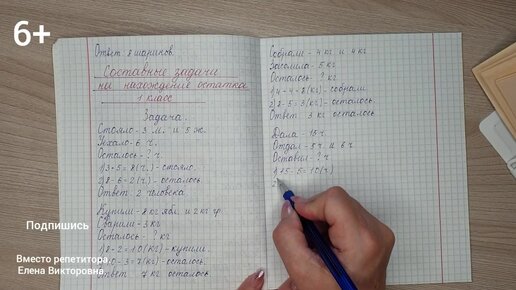 6+
Ответ: 8 шариков.
Составные задачи
на нахождение остатка
1 класс
Задача.
Стояло - 3 м. и 5 ж.
Уехало - 6 ч.
Осталось - ? ч.
1) 3+5=8(ч.) - стояло.
2) 8-6=2(ч.) - осталось.
Ответ: 2 человека.
Купили - 8 кг ябл. и 2 кг гр.
Сварили - 3 кг
Осталось - ? кг
1) 8+2=10(кг) - купили.
10-3=7(кг) - осталось.
Ответ: 7 кг осталось.
Собрали - 4 кг и 4 кг
Засолила - 5 кг
Осталось - ? кг
1) 4+4=8(кг) - собрали
2) 8-5=3(кг) - осталось.
Ответ: 3 кг осталось
Дала - 15 ч.
Отдал - 5 ч. и 6 ч
Оставил - ? ч.
1) 15-5=10(ч.)
2)
Подпишись
Вместо репетитора.
Елена Викторовна.